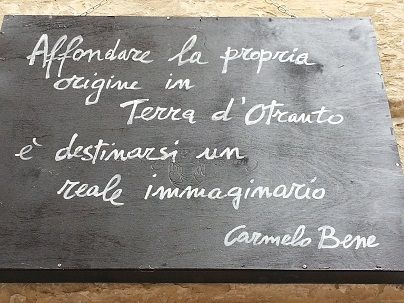 Affondare la propria
origine in
Terra d'Otranto
è destinarsi un
reale immaginario
Carmelo Bene